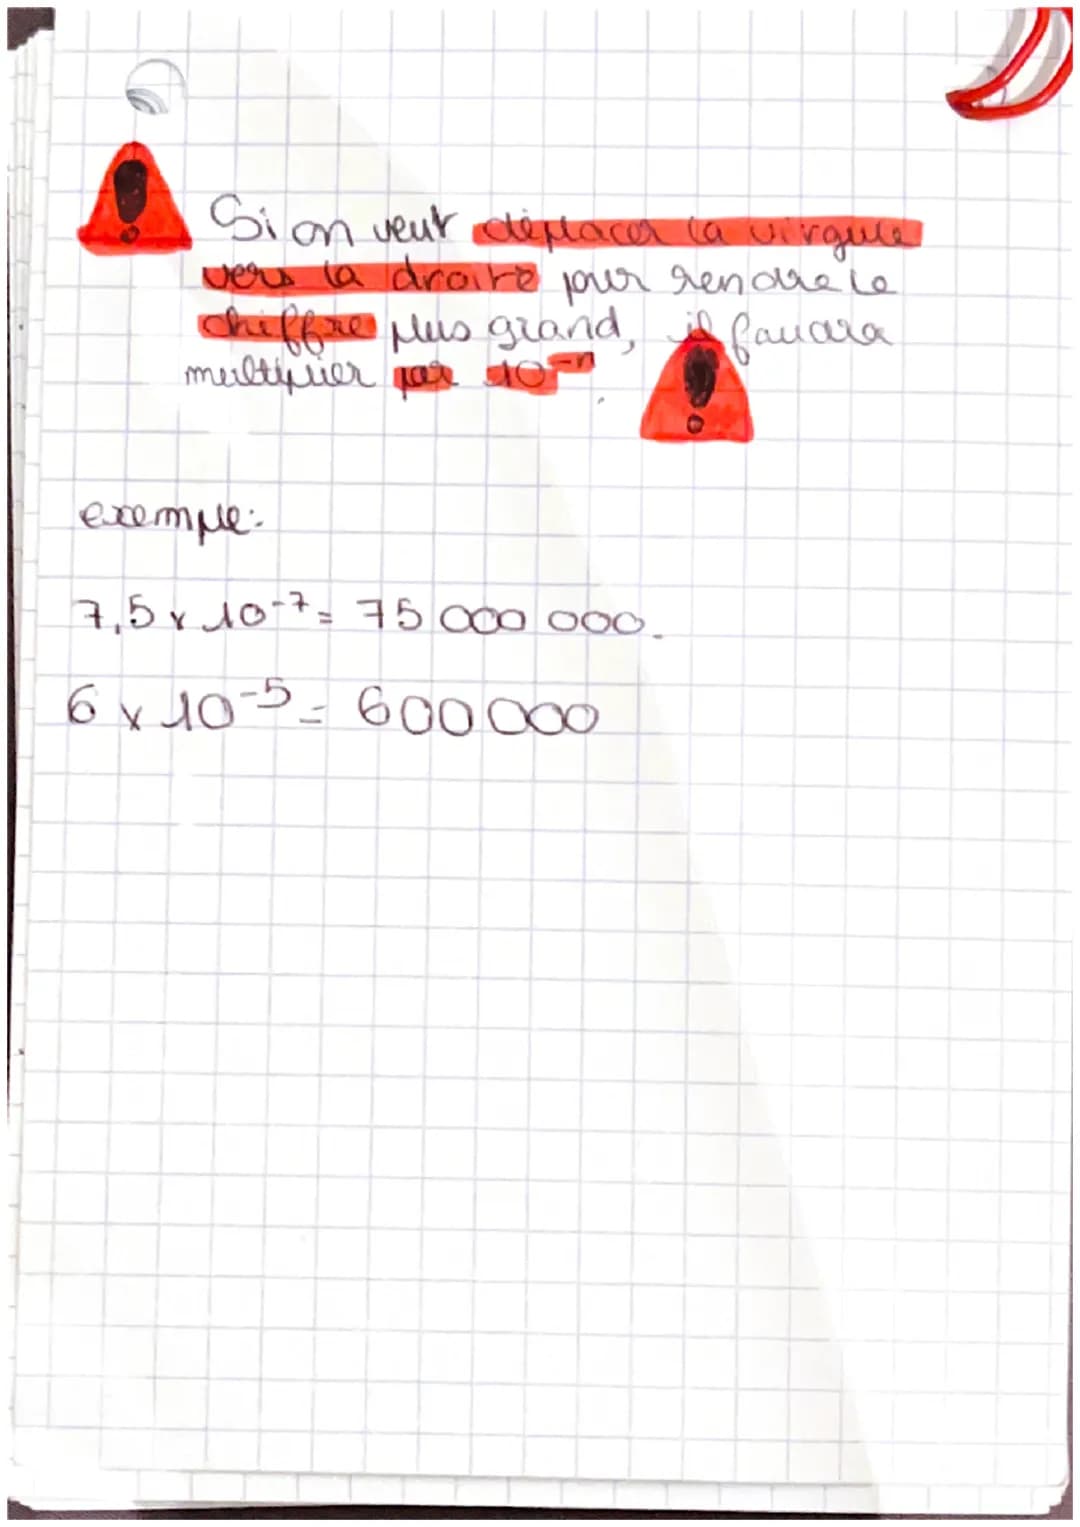 Si on veut déplacer la virgule
vers la droite pour rendre le
chiffre plus grand, il faudra
multiplier par 10⁻ⁿ.
exemple:
7,5 x 10⁻⁷ = 75 000 000.
6 x 10⁻⁵ = 600 000